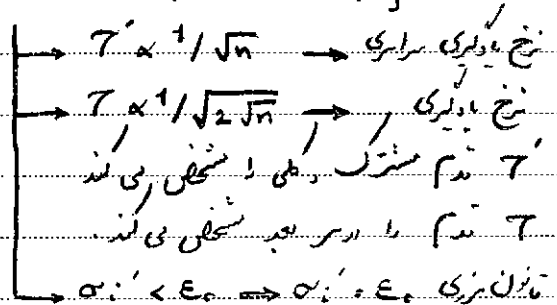 → τ' ∝ 1/√n → نرخ یادگیری سراسری
→ τ ∝ 1/√2√n → نرخ یادگیری
τ' قدم مشترک و کلی را مشخص می کند
τ قدم را در هر بعد مشخص می کند.
→ σi' < ε₀ ⇒ σi' = ε₀ قانون مرزی